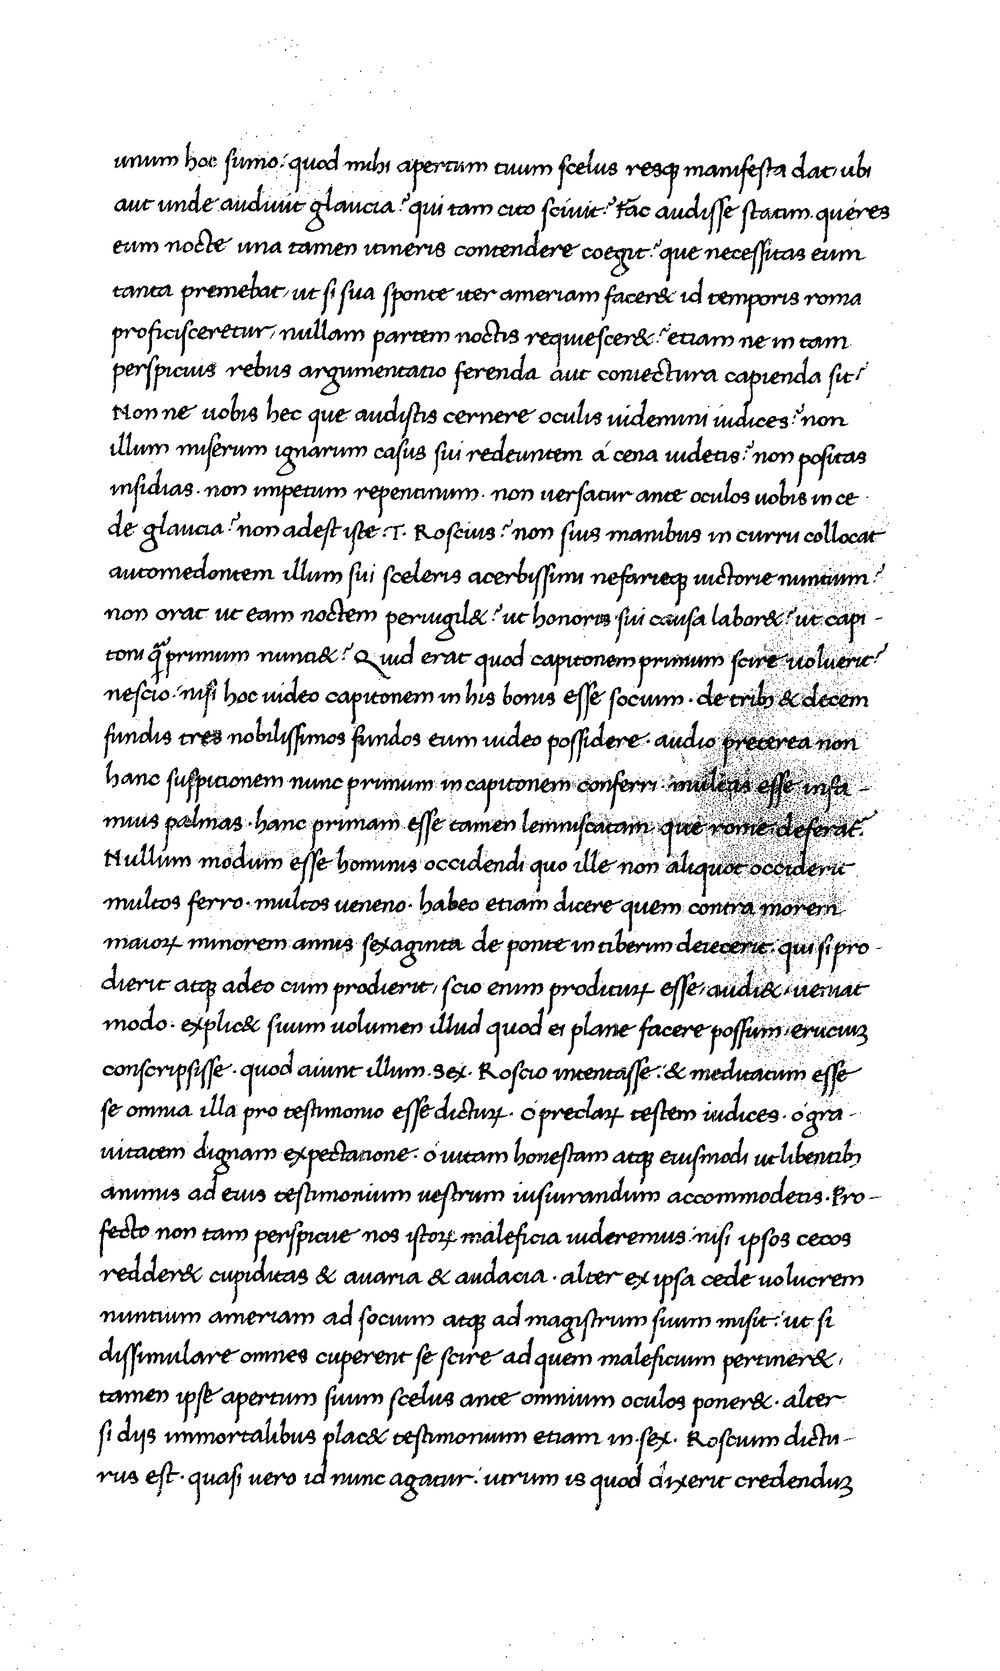 unum hoc sumo: quod mihi apertum tuum scelus resq; manifesta dat, ubi
aut unde audiuit glaucia? qui tam cito sciuit? Fac audisse statim. queres
eum nocte una tamen itineris contendere coegit? que necessitas eum
tanta premebat, ut si sua sponte iter ameriam facer& id temporis roma
proficisceretur, nullam partem noctis requiescer&? etiam ne in tam
perspicuis rebus argumentatio ferenda aut coniectura capienda sit?
Non ne uobis hec que audistis cernere oculis uidemini iudices? non
illum miserum ignarum casus sui redeuntem á cena uidetis? non positas
insidias. non impetum repentinum. non uersatur ante oculos uobis in ce
de glaucia? non adest iste .T. Roscius? non suis manibus in curru collocat
automedontem illum sui sceleris acerbissimi nefarieq; uictorie nuntium?
non orat ut eam noctem peruigil&? ut honoris sui causa labor&? ut capi-
toni q̃primum nunti&? Quid erat quod capitonem primum scire uoluerit?
nescio: nisi hoc uideo capitonem in his bonis esse socium. de trib; & decem
fundis tres nobilissimos fundos eum uideo possidere. audio preterea non
hanc suspicionem nunc primum in capitonem conferri. multas esse infa-
mius palmas. hanc primam esse tamen lemniscatam que rome deferat.
Nullum modum esse hominis occidendi quo ille non aliquot occiderit
multos ferro. multos ueneno. habeo etiam dicere quem contra morem
maioꝝ minorem annis sexaginta de ponte in tiberim deiecerit. qui si pro-
dierit atq; adeo cum prodierit, scio enim proditurꝝ esse, audi&. ueniat
modo. explic& suum uolumen illud quod ei plane facere possum, eruciuꝫ
conscripsisse. quod aiunt illum .Sex. Roscio intentasse: & meditatum esse
se omnia illa pro testimonio esse dicturꝝ. ó preclarꝝ testem iudices. ó gra-
uitatem dignam expectatione. ó uitam honestam atq; eiusmodi ut libentib;
animis ad eius testimonium uestrum iusiurandum accommodetis. Pro-
fecto non tam perspicue nos istoꝝ maleficia uideremus: nisi ipsos cecos
redder& cupiditas & auaria & audacia. alter ex ipsa cede uolucrem
nuntium ameriam ad socium atq; ad magistrum suum misit: ut si
dissimulare omnes cuperent se scire ad quem maleficium pertiner&,
tamen ipse apertum suum scelus ante omnium oculos poner&. alter
si diis immortalibus plac& testimonium etiam in .sex. Roscium dictu-
rus est. quasi uero id nunc agatur: utrum is quod dixerit credenduꝫ